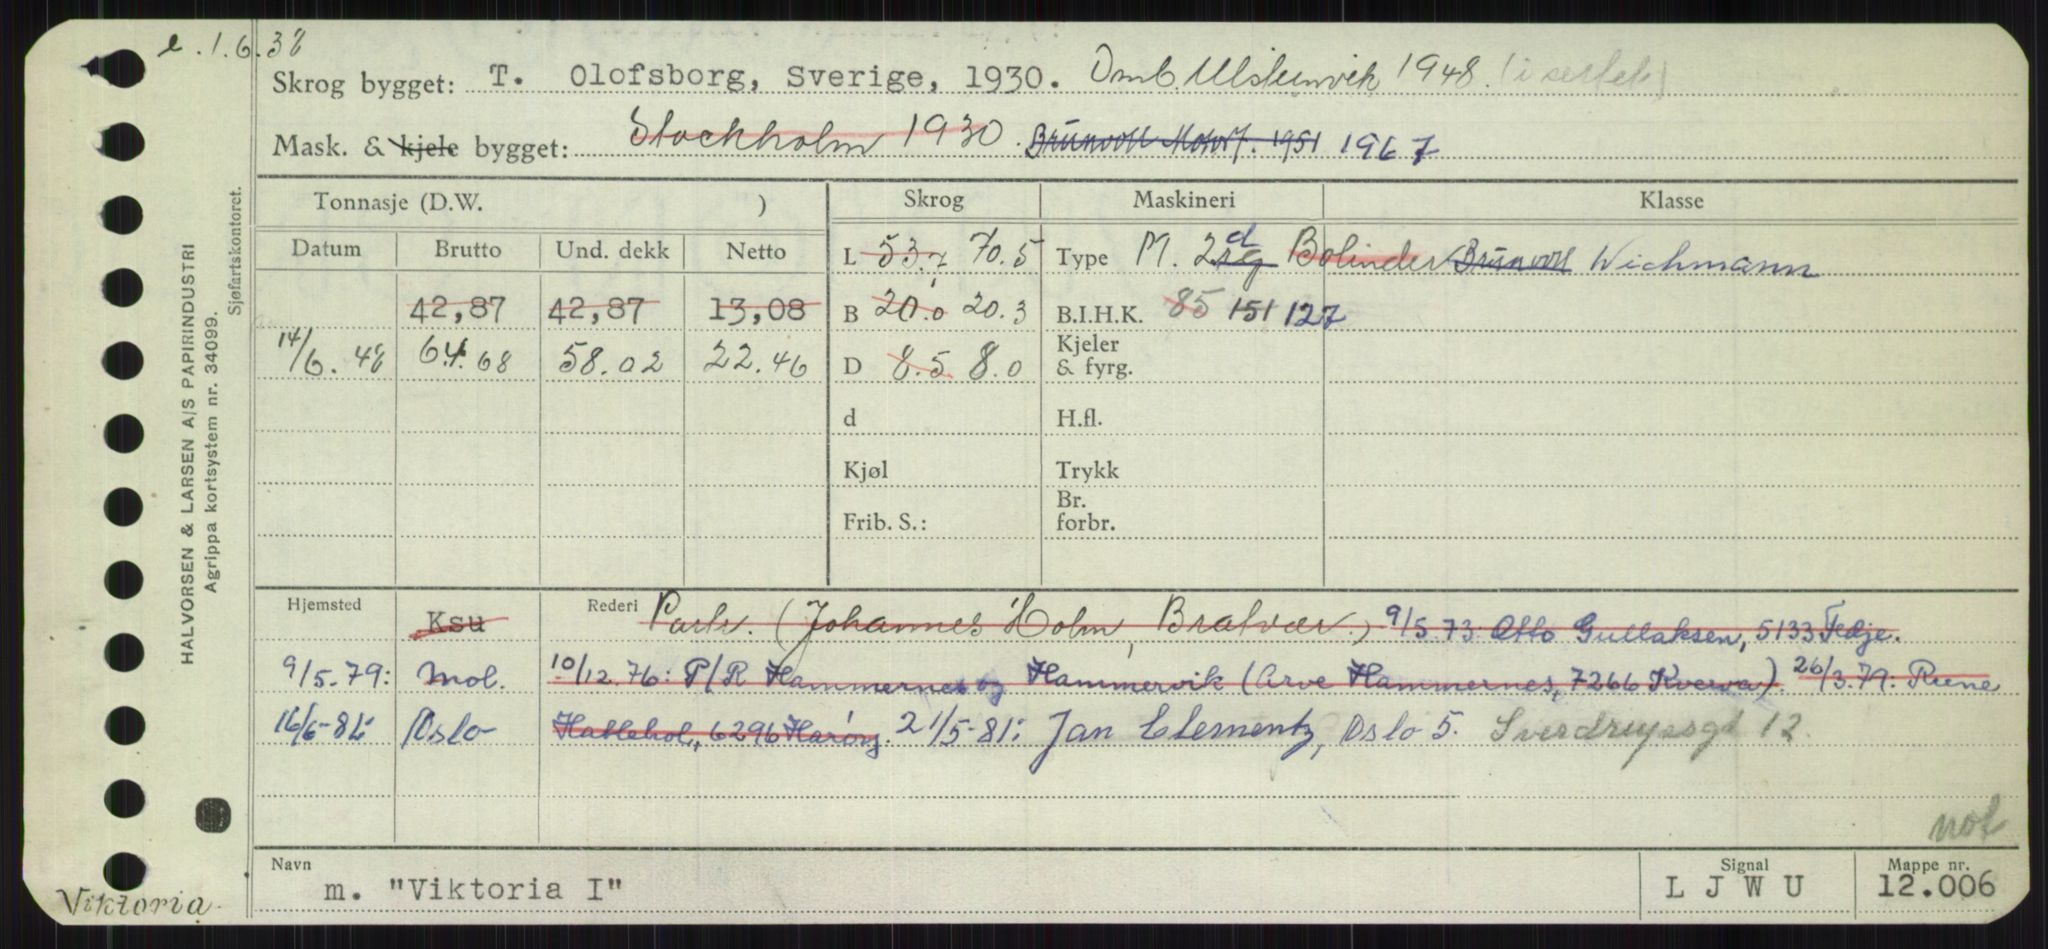 e. 1.6.38
Skrog bygget: T. Olofsborg, Sverige, 1930. Omb. Ulsteinvik 1948 (i
Mask. & kjele bygget: Stockholm 1930. Brunvoll Motorf. 1951 1967
Tonnasje (D.W. ) Skrog Maskineri Klasse
Datum Brutto Und. dekk Netto L 53,7 70.5 Type M. 2 d Bolinder Brunvoll Wichmann
42,87 42,87 13,08 B 20.0 20.3 B.I.H.K. 85 151 127
14/6.48 64.68 58.02 22.46 D 8.5 8.0 Kjeler & fyrg.
d H.fl.
Kjøl Trykk
Frib. S.: Br. forbr.
Hjemsted Ksu Rederi Partr. (Johannes Holm, Bratvær.) 9/5 73 Otto Gullaksen, 5133 Fedje.
9/5.79: Mol. 10/12.76: P/R Hammernes og Hammervik (Arve Hammernes, 7266 Kverva). 26/3.79: Rune
16/6-81: Oslo Hattehol, 6296 Harøy. 21/5-81: Jan Clementz, Oslo 5. Sverdrupsgt 12.
not
Navn Signal Mappe nr.
m. "Viktoria I" L J W U 12.006
Viktoria
HALVORSEN & LARSEN A/S PAPIRINDUSTRI
Agrippa kortsystem nr. 34099.
Sjøfartskontoret.